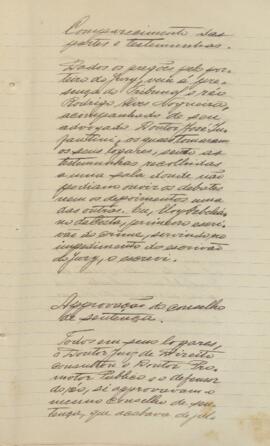 Comparecimento das
partes e testemunhas.
Dados os pregões pelo por-
teiro do Jury, veiu á pre-
sença do Tribunal o réo
Rodrigo Alves Nogueira,
acompanhado de seu
advogado Doutor José In-
fantini, os quaes tomaram
os seus logares, sendo as
testemunhas recolhidas
a uma sala donde não
podiam ouvir os debates
nem os depoimentos uma
das outras. Eu,
da Costa, primeiro escri-
vão do crime, servindo no
impedimento do escrivão
do Jury, o escrevi.
Approvação do conselho
de sentença.
Todos em seus logares,
o Doutor Juiz de Direito
consultou o Doutor Pro-
motor Publico e o defensor
do réo, si approvavam o
mesmo Conselho de sen-
tença, que acabava de jul-